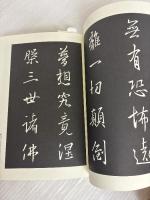 無有恐怖遠
離一切顛倒
夢想究竟涅
槃三世諸佛